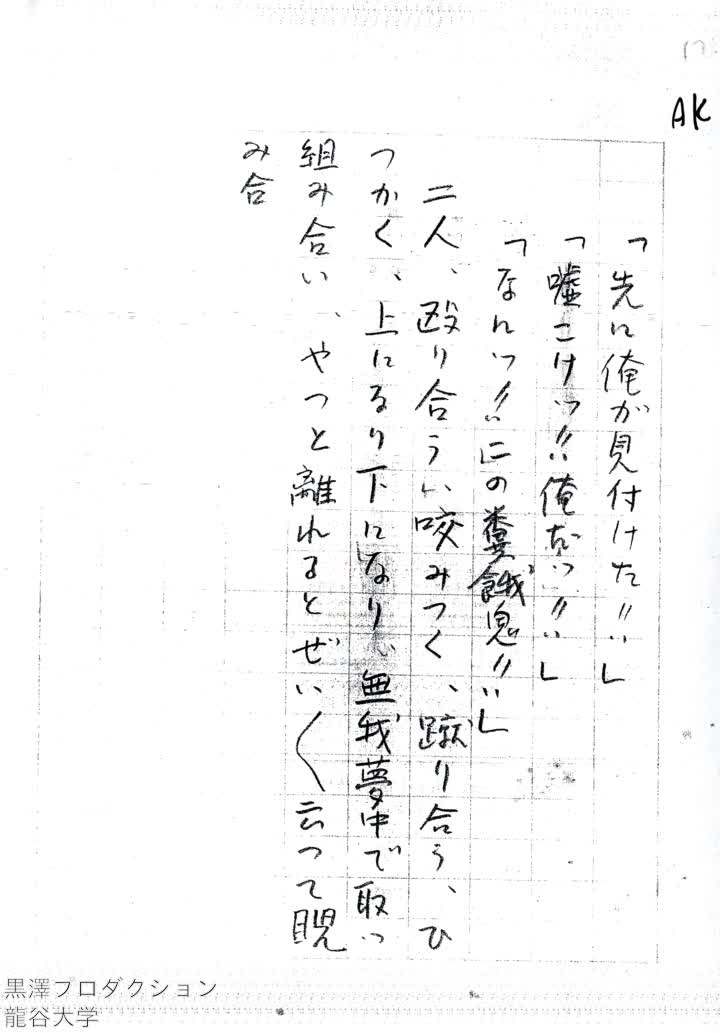 17
AK
「先に俺が見付けた!!」
「嘘こけッ!! 俺だッ!!」
「なにッ!! この糞餓鬼!!」
二人、殴り合う、咬みつく、蹴り合う、ひ
つかく、上になり下になり、無我夢中で取っ
組み合い、やつと離れるとぜい〱云つて睨
み合
黒澤プロダクション
龍谷大学